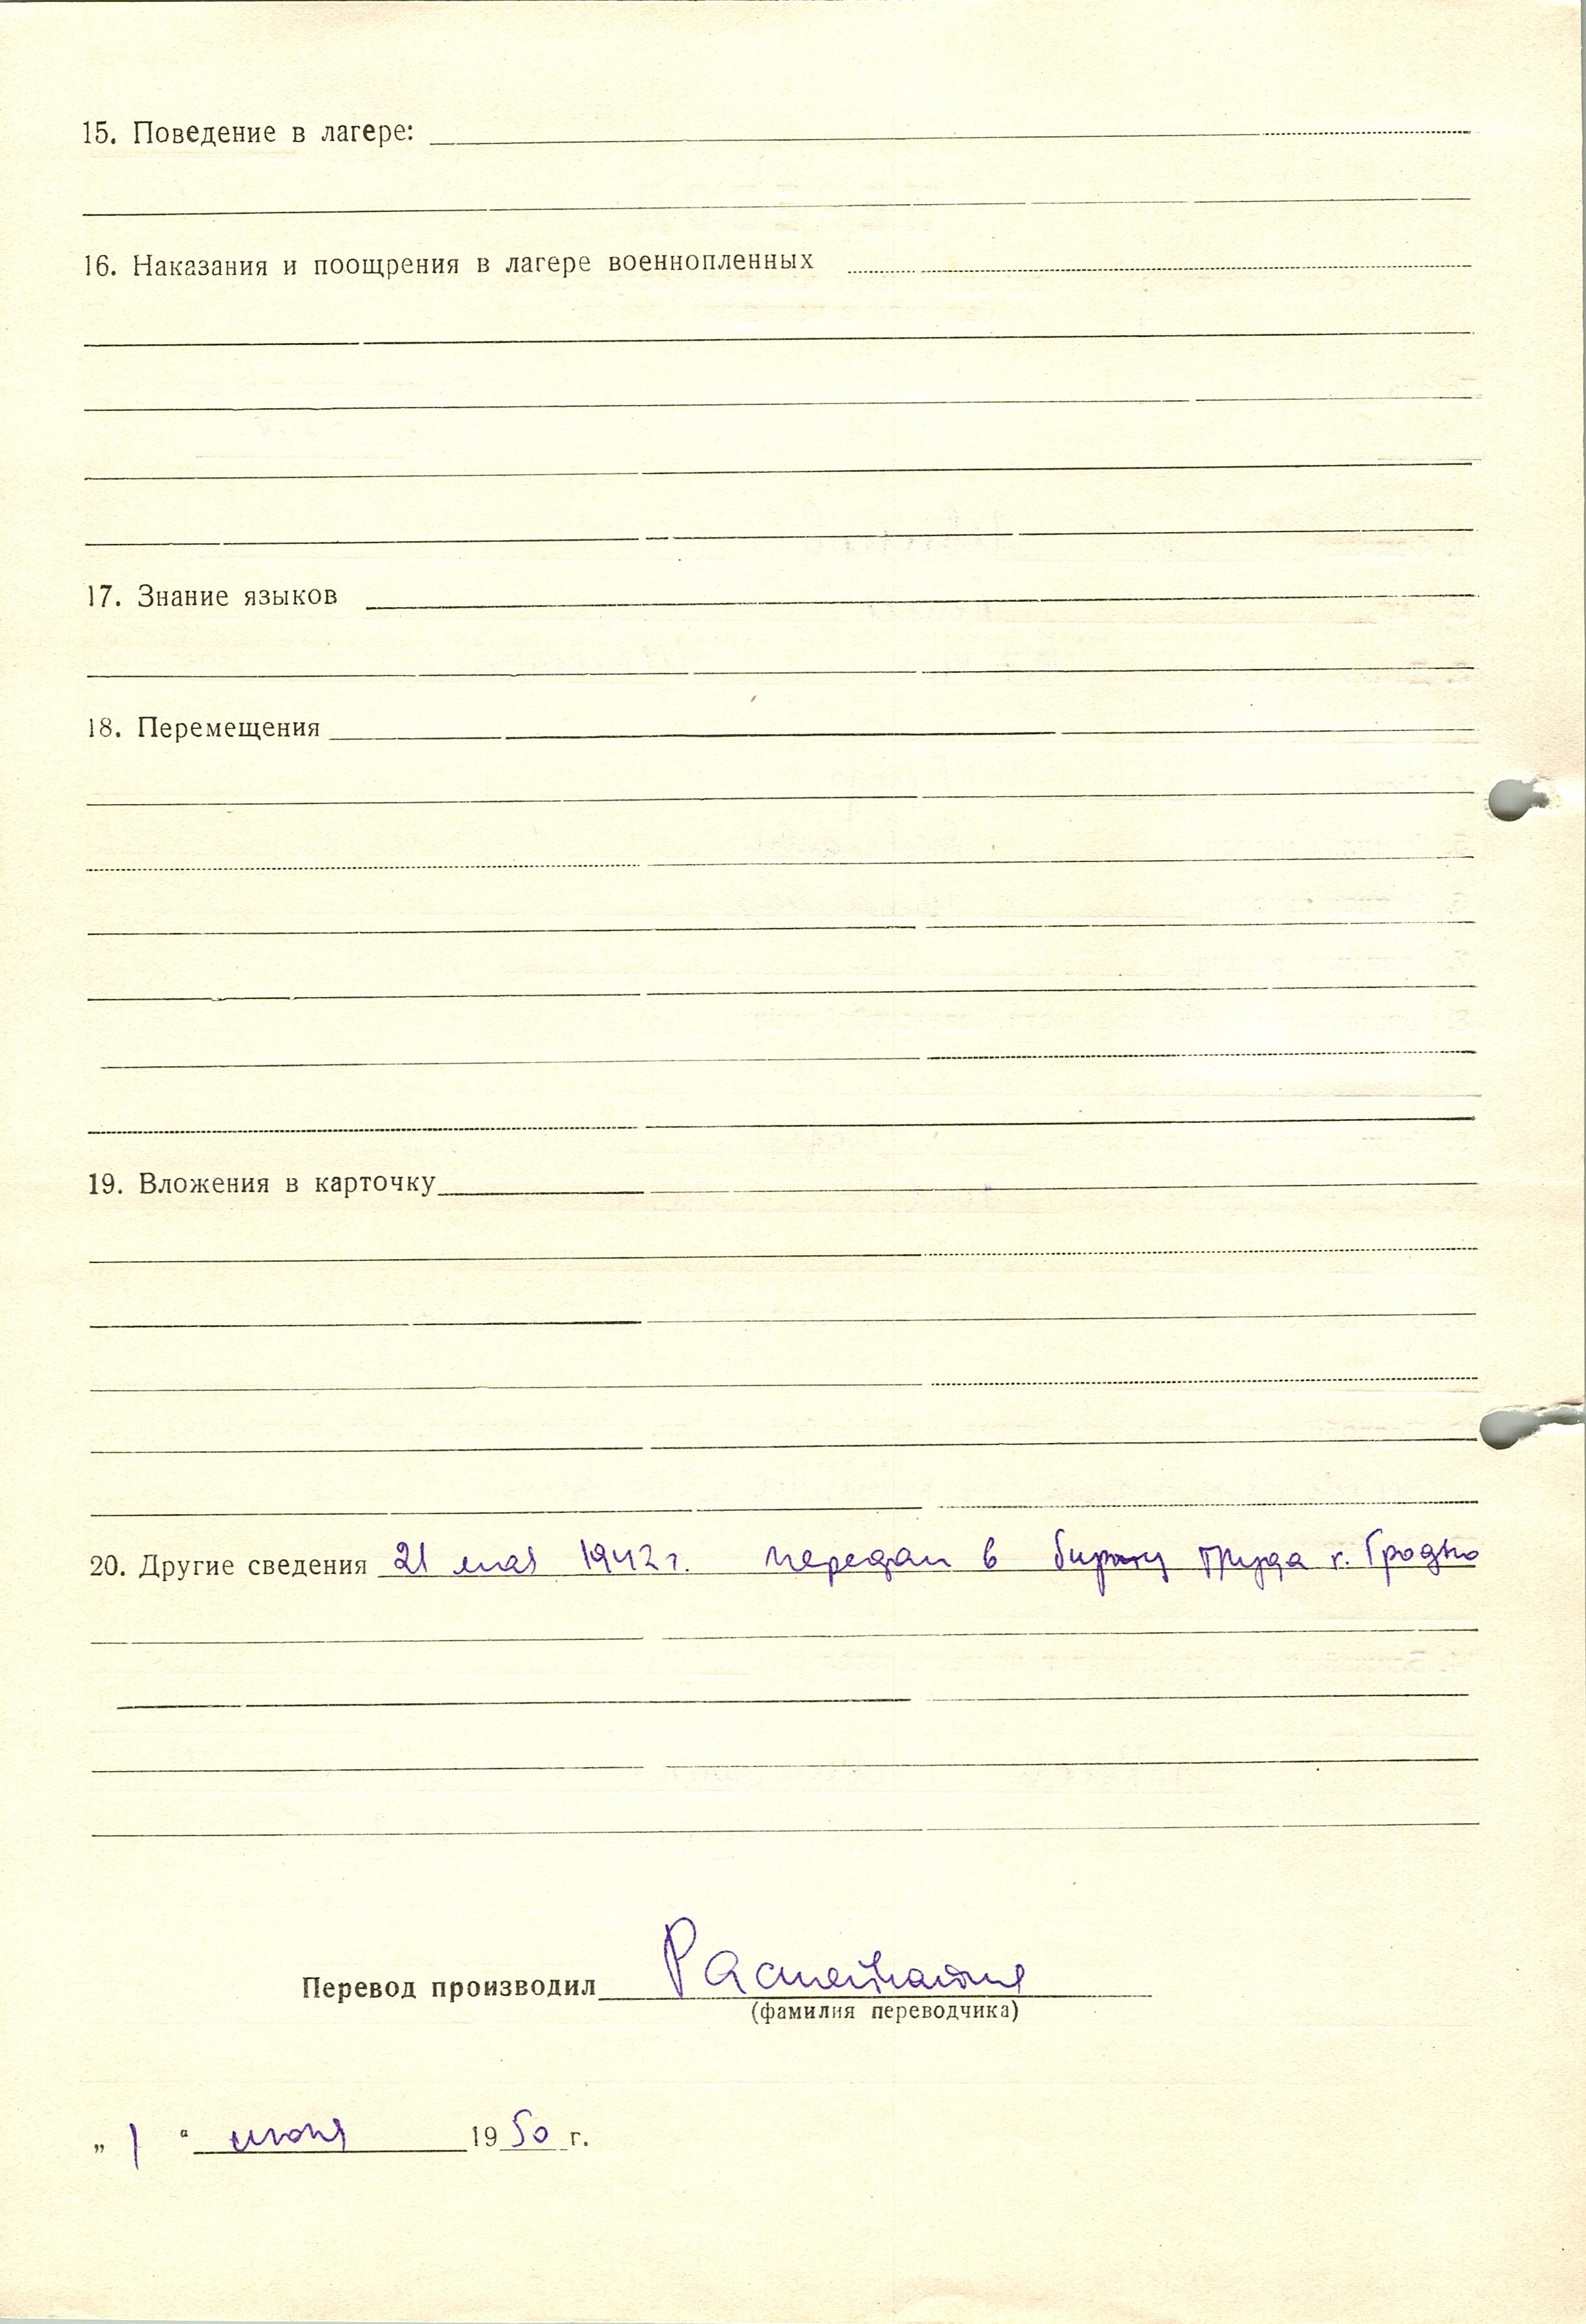 15. Поведение в лагере:
16. Наказания и поощрения в лагере военнопленных
17. Знание языков
18. Перемещения
19. Вложения в карточку
20. Другие сведения 21 мая 1942 г. передан в биржу труда г. Гродно
Перевод производил
(фамилия переводчика)
„ 1 “ июня 1950 г.